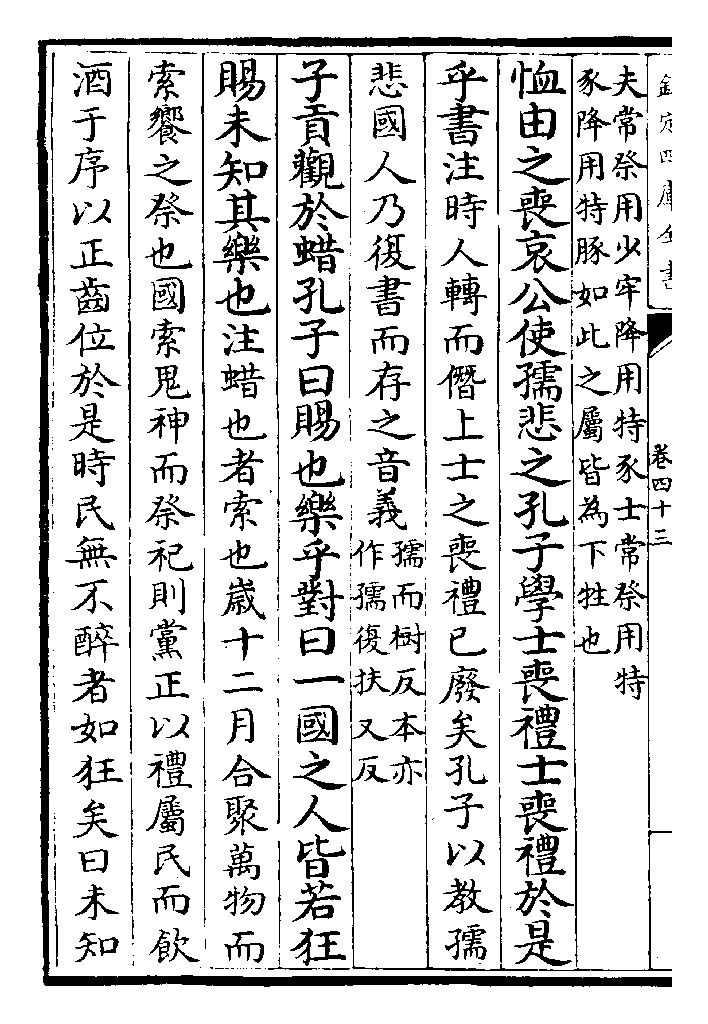 欽定四庫全書
卷四十三
夫常祭用少牢降用特豕士常祭用特
豕降用特豚如此之屬皆為下牲也
恤由之喪哀公使孺悲之孔子學士喪禮士喪禮於是
乎書注時人轉而僭上士之喪禮已廢矣孔子以教孺
悲國人乃復書而存之音義孺而樹反本亦
作孺復扶又反
子貢觀於蜡孔子曰賜也樂乎對曰一國之人皆若狂
賜未知其樂也注蜡也者索也歲十二月合聚萬物而
索饗之祭也國索鬼神而祭祀則黨正以禮屬民而飲
酒于序以正齒位於是時民無不醉者如狂矣曰未知